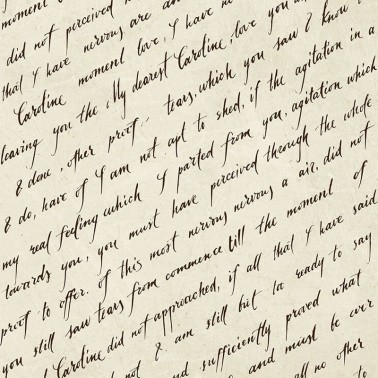 moment love, I
did not perceived
that I have nervous are an
Caroline moment love, I have no
leaving you the My dearest Caroline, love you
& done, other proof. tears, which you saw I know
& do, have of I am not apt to shed, if the agitation in a
my real feeling which I parted from you, agitation which
towards you, you must have perceived through the whole
proof to offer. of this most nervous nervous a air, did not
you still saw tears from commence till the moment of
Caroline did not approached, if all that I have said
not & am still but to ready to say
and sufficiently proved what
and must be ever
all no other
to